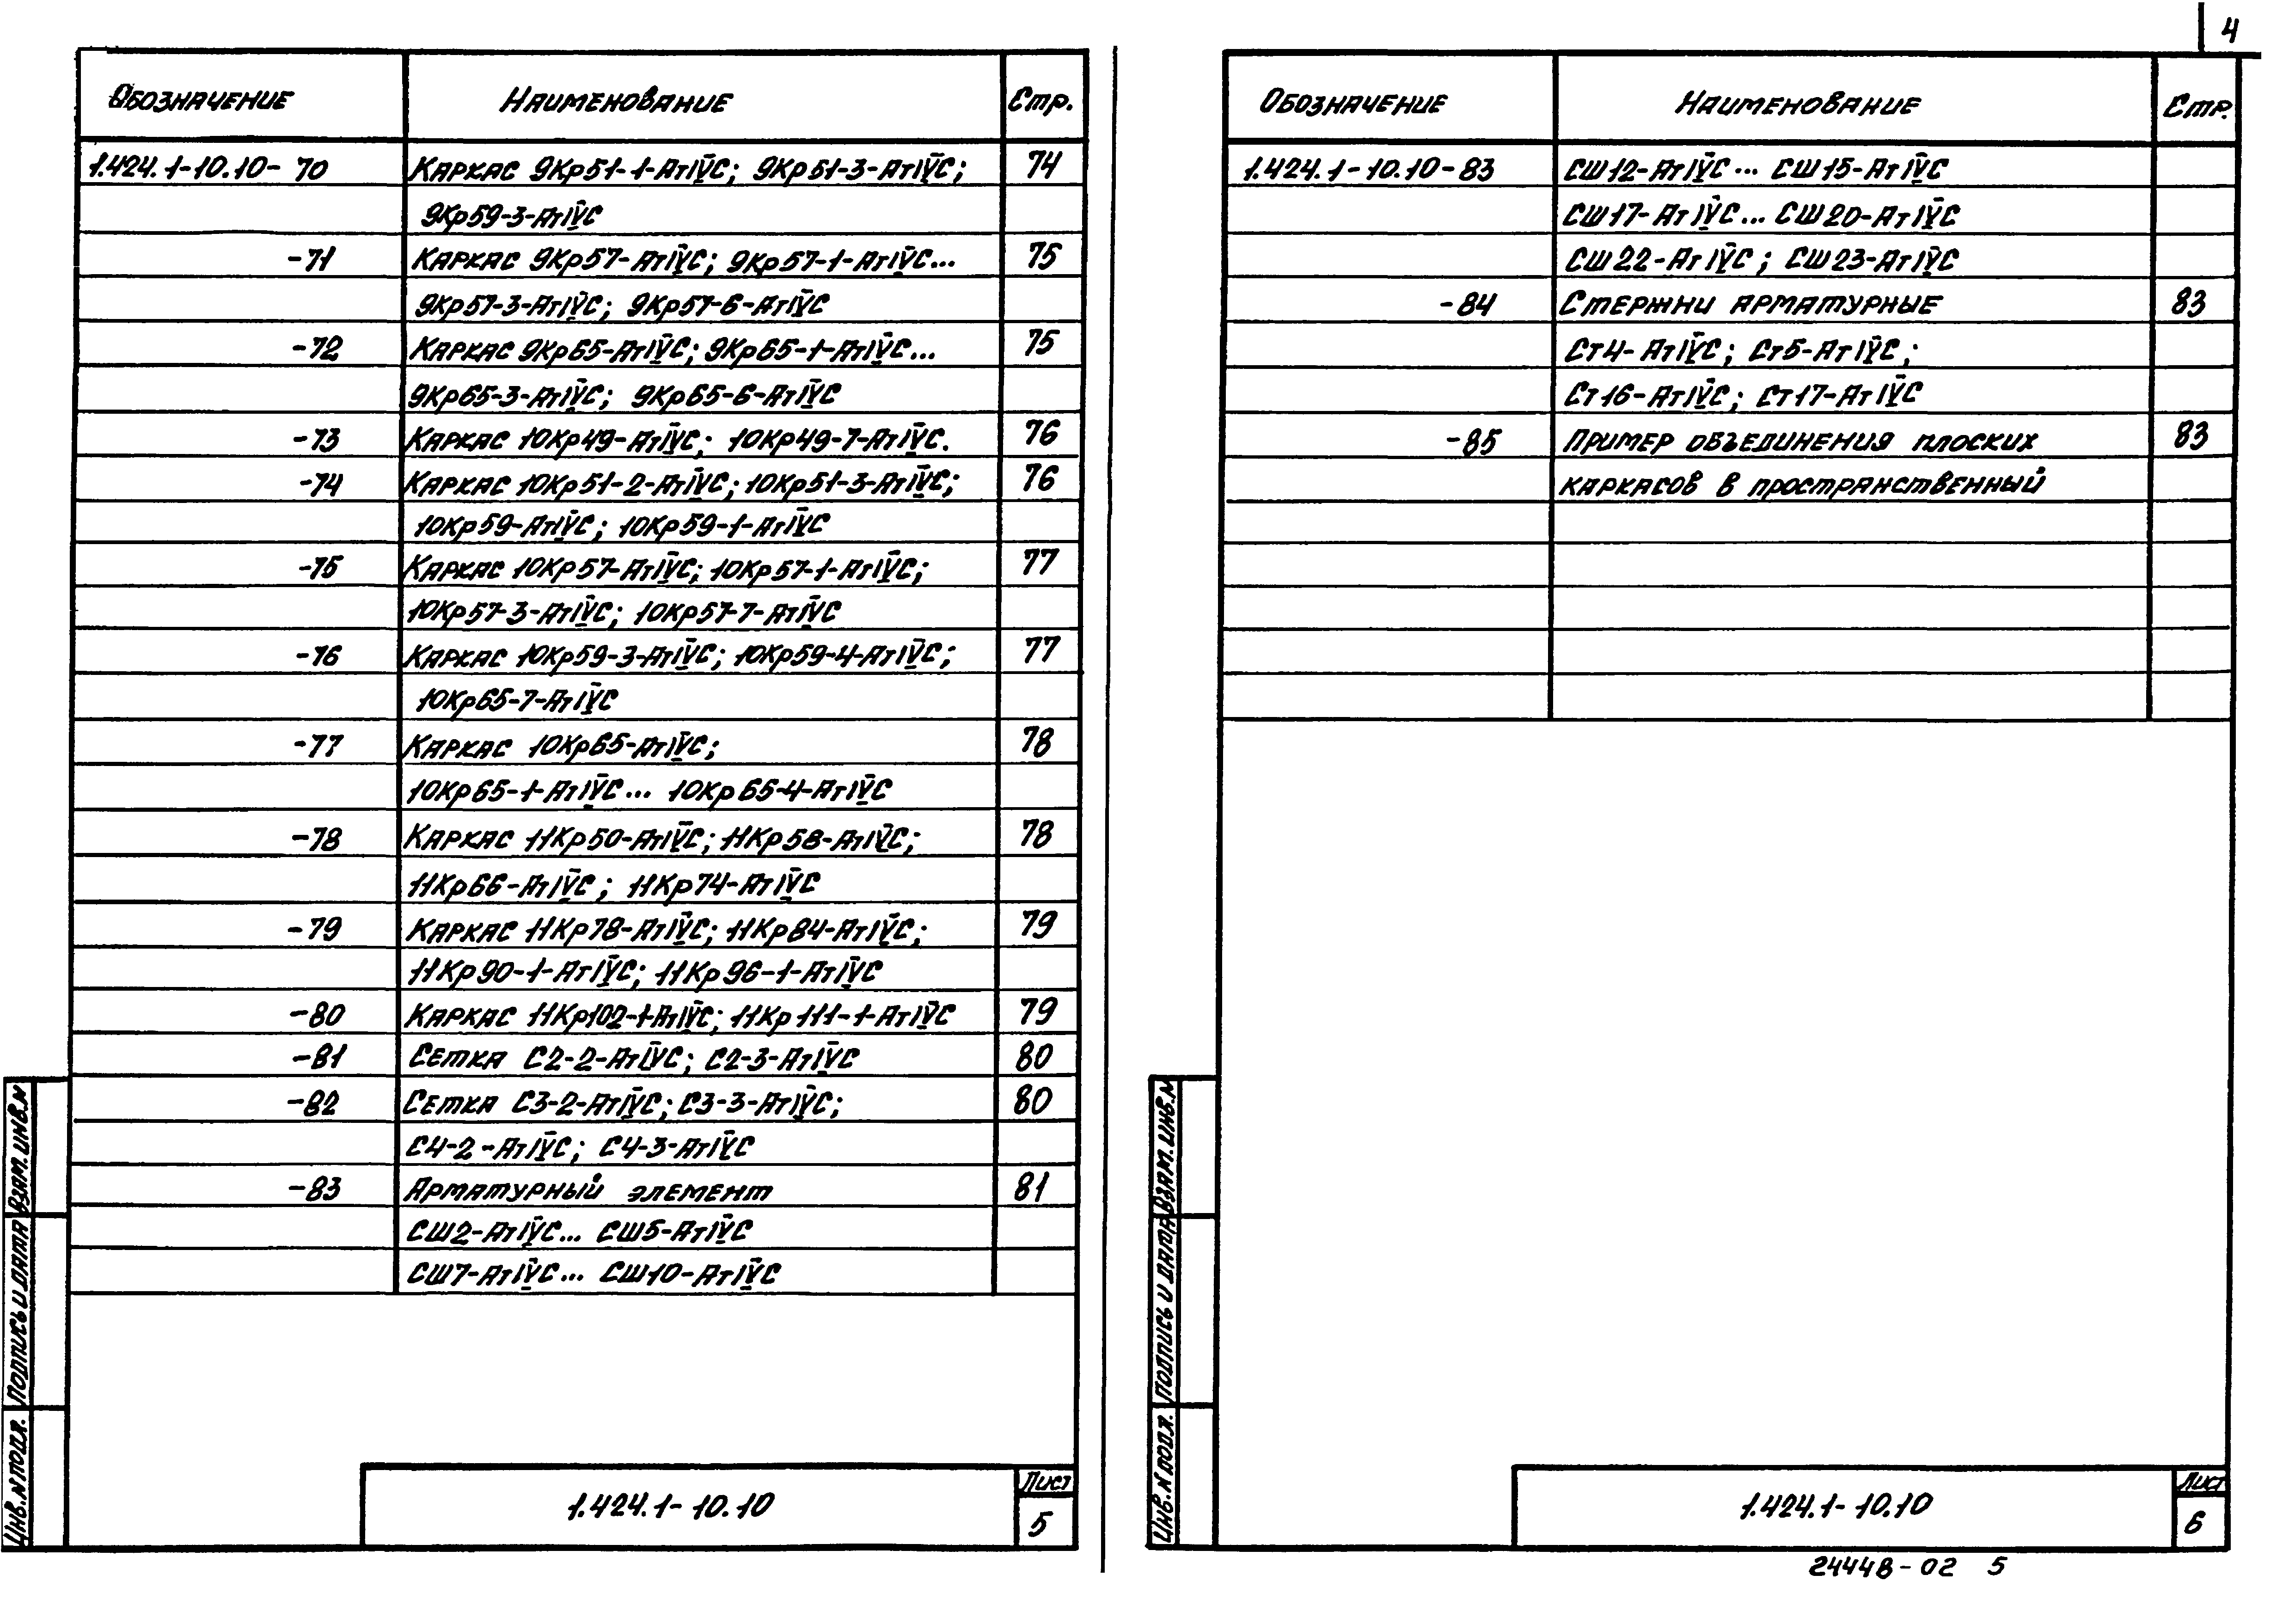 4
Обозначение Наименование Стр.
1.424.1-10.10-70 Каркас 9Кр51-1-АтIVС; 9Кр51-3-АтIVС; 74
9Кр59-3-АтIVС
-71 Каркас 9Кр57-АтIVС; 9Кр57-1-АтIVС... 75
9Кр57-3-АтIVС; 9Кр57-6-АтIVС
-72 Каркас 9Кр65-АтIVС; 9Кр65-1-АтIVС... 75
9Кр65-3-АтIVС; 9Кр65-6-АтIVС
-73 Каркас 10Кр49-АтIVС; 10Кр49-7-АтIVС. 76
-74 Каркас 10Кр51-2-АтIVС; 10Кр51-3-АтIVС; 76
10Кр59-АтIVС; 10Кр59-1-АтIVС
-75 Каркас 10Кр57-АтIVС; 10Кр57-1-АтIVС; 77
10Кр57-3-АтIVС; 10Кр57-7-АтIVС
-76 Каркас 10Кр59-3-АтIVС; 10Кр59-4-АтIVС; 77
10Кр65-7-АтIVС
-77 Каркас 10Кр65-АтIVС; 78
10Кр65-1-АтIVС... 10Кр65-4-АтIVС
-78 Каркас 11Кр50-АтIVС; 11Кр58-АтIVС; 78
11Кр66-АтIVС; 11Кр74-АтIVС
-79 Каркас 11Кр78-АтIVС; 11Кр84-АтIVС; 79
11Кр90-1-АтIVС; 11Кр96-1-АтIVС
-80 Каркас 11Кр102-1-АтIVС; 11Кр111-1-АтIVС 79
-81 Сетка С2-2-АтIVС; С2-3-АтIVС 80
-82 Сетка С3-2-АтIVС; С3-3-АтIVС; 80
С4-2-АтIVС; С4-3-АтIVС
-83 Арматурный элемент 81
СШ2-АтIVС... СШ5-АтIVС
СШ7-АтIVС... СШ10-АтIVС
Инв.№ подл. Подпись и дата Взам.инв.№
1.424.1-10.10
Лист
5
Обозначение Наименование Стр.
1.424.1-10.10-83 СШ12-АтIVС... СШ15-АтIVС
СШ17-АтIVС... СШ20-АтIVС
СШ22-АтIVС; СШ23-АтIVС
-84 Стержни арматурные 83
Ст4-АтIVС; Ст5-АтIVС;
Ст16-АтIVС; Ст17-АтIVС
-85 Пример объединения плоских 83
каркасов в пространственный
Инв.№ подл. Подпись и дата Взам.инв.№
1.424.1-10.10
Лист
6
24448-02 5